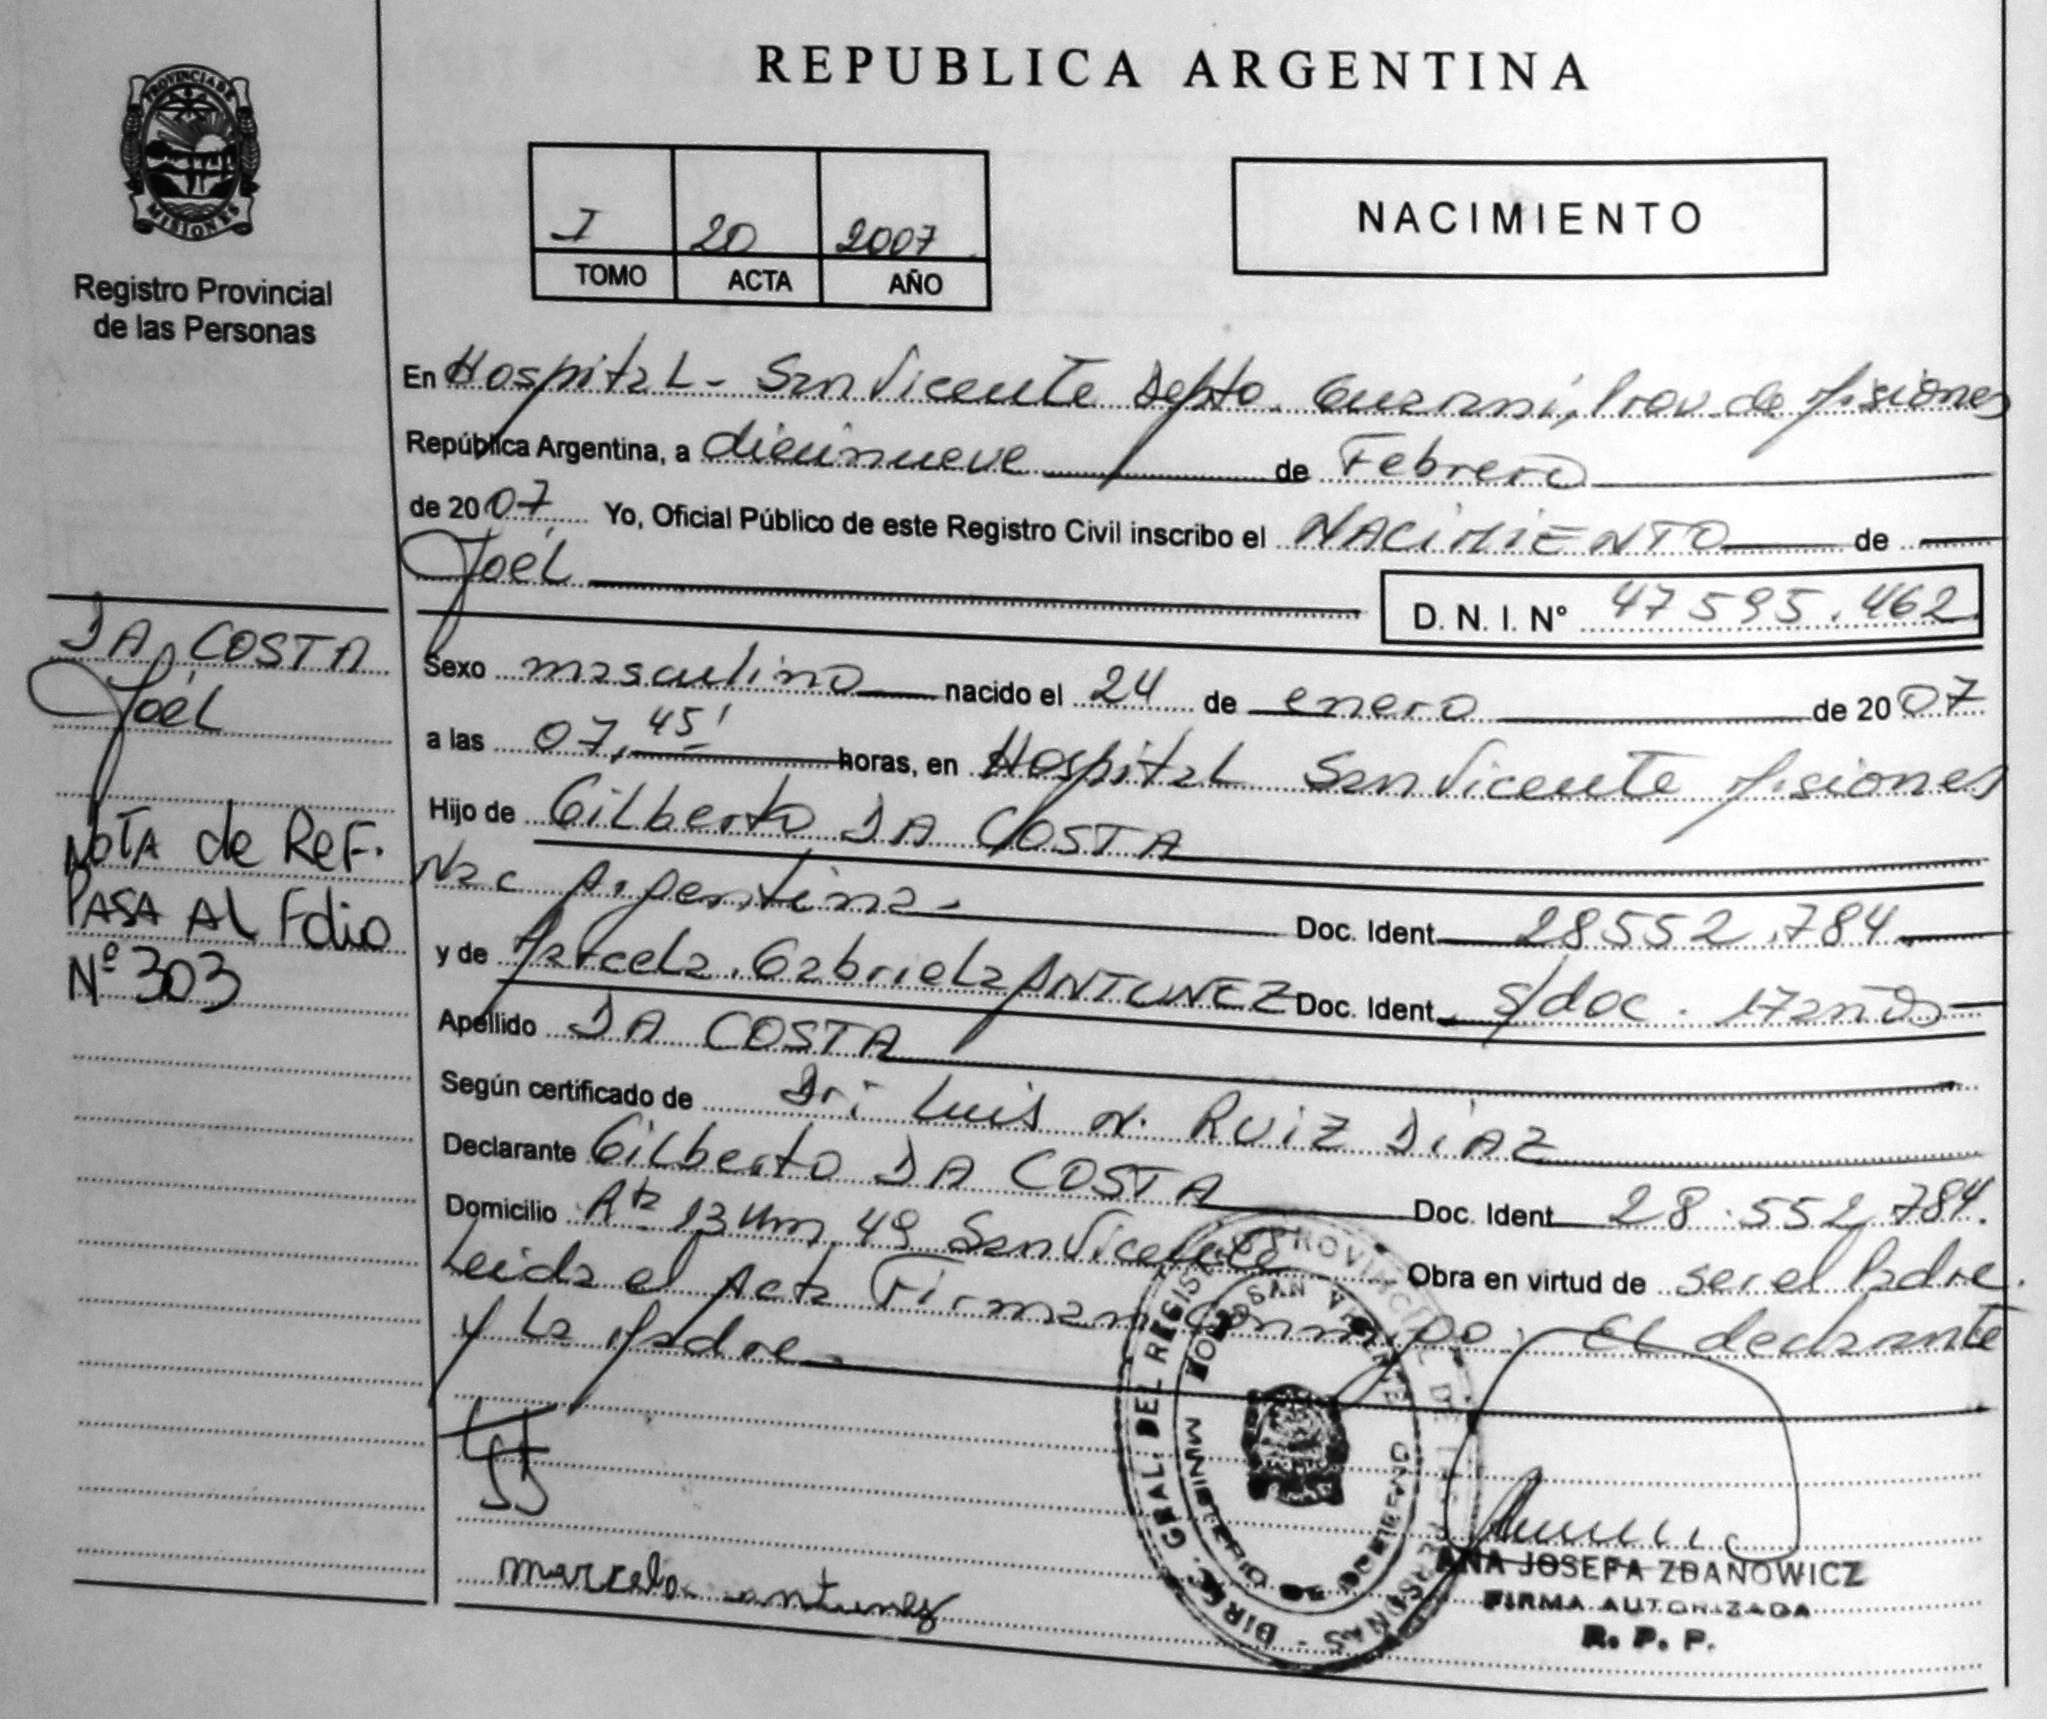 REPUBLICA ARGENTINA
PROVINCIA DE
MISIONES
Registro Provincial
de las Personas
I 20 2007
TOMO ACTA AÑO
NACIMIENTO
En Hospital - San Vicente Depto. Guaraní, Prov. de Misiones
República Argentina, a diecinueve de Febrero
de 2007 Yo, Oficial Público de este Registro Civil inscribo el NACIMIENTO de
Joél
D. N. I. Nº 47595.462
DA COSTA
Joél
NOTA de REF.
PASA Al Folio
Nº 303
Sexo masculino nacido el 24 de enero de 2007
a las 07,45' horas, en Hospital San Vicente Misiones
Hijo de Gilberto DA COSTA
Nac Argentina. Doc. Ident 28552.784
y de Marcela Gabriela ANTUNEZ Doc. Ident s/doc. 17 años
Apellido DA COSTA
Según certificado de Dr: Luis N. RUIZ DIAZ
Declarante Gilberto DA COSTA Doc. Ident 28.552.784.
Domicilio Rta 13 Km 49 San Vicente Obra en virtud de ser el Padre.
Leida el Acta Firman conmigo: El declarante
y La Madre.
marcela antunez
DIREC. GRAL. DEL REGISTRO PROVINCIAL DE LAS PERSONAS
MINISTERIO DE GOBIERNO
SAN VICENTE
ANA JOSEFA ZDANOWICZ
FIRMA AUTORIZADA
R. P. P.